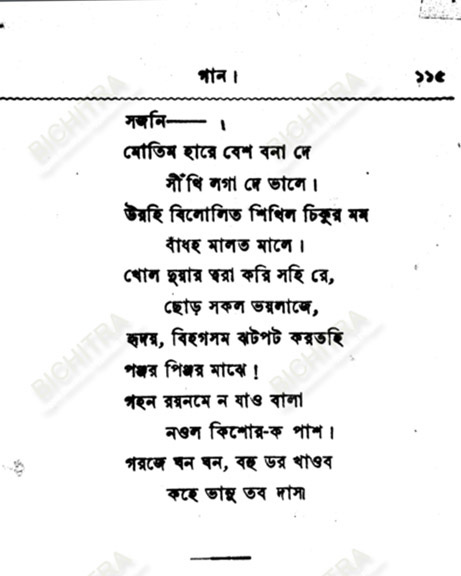 গান।
১১৫
সজনি—— ।
মোতিম হারে বেশ বনা দে
সীঁথি লগা দে ভালে।
উরহি বিলোলিত শিথিল চিকুর মম
বাঁধহ মালত মালে।
খোল দুয়ার ত্বরা করি সহি রে,
ছোড় সকল ভয়লাজে,
হৃদয়, বিহগসম ঝটপট করতহি
পঞ্জর পিঞ্জর মাঝে!
গহন রয়নমে ন যাও বালা
নওল কিশোর-ক পাশ।
গরজে ঘন ঘন, বহু ডর খাওব
কহে ভানু তব দাস।
BICHITRA
BICHITRA
BICHITRA
BICHITRA
BICHITRA
BICHITRA